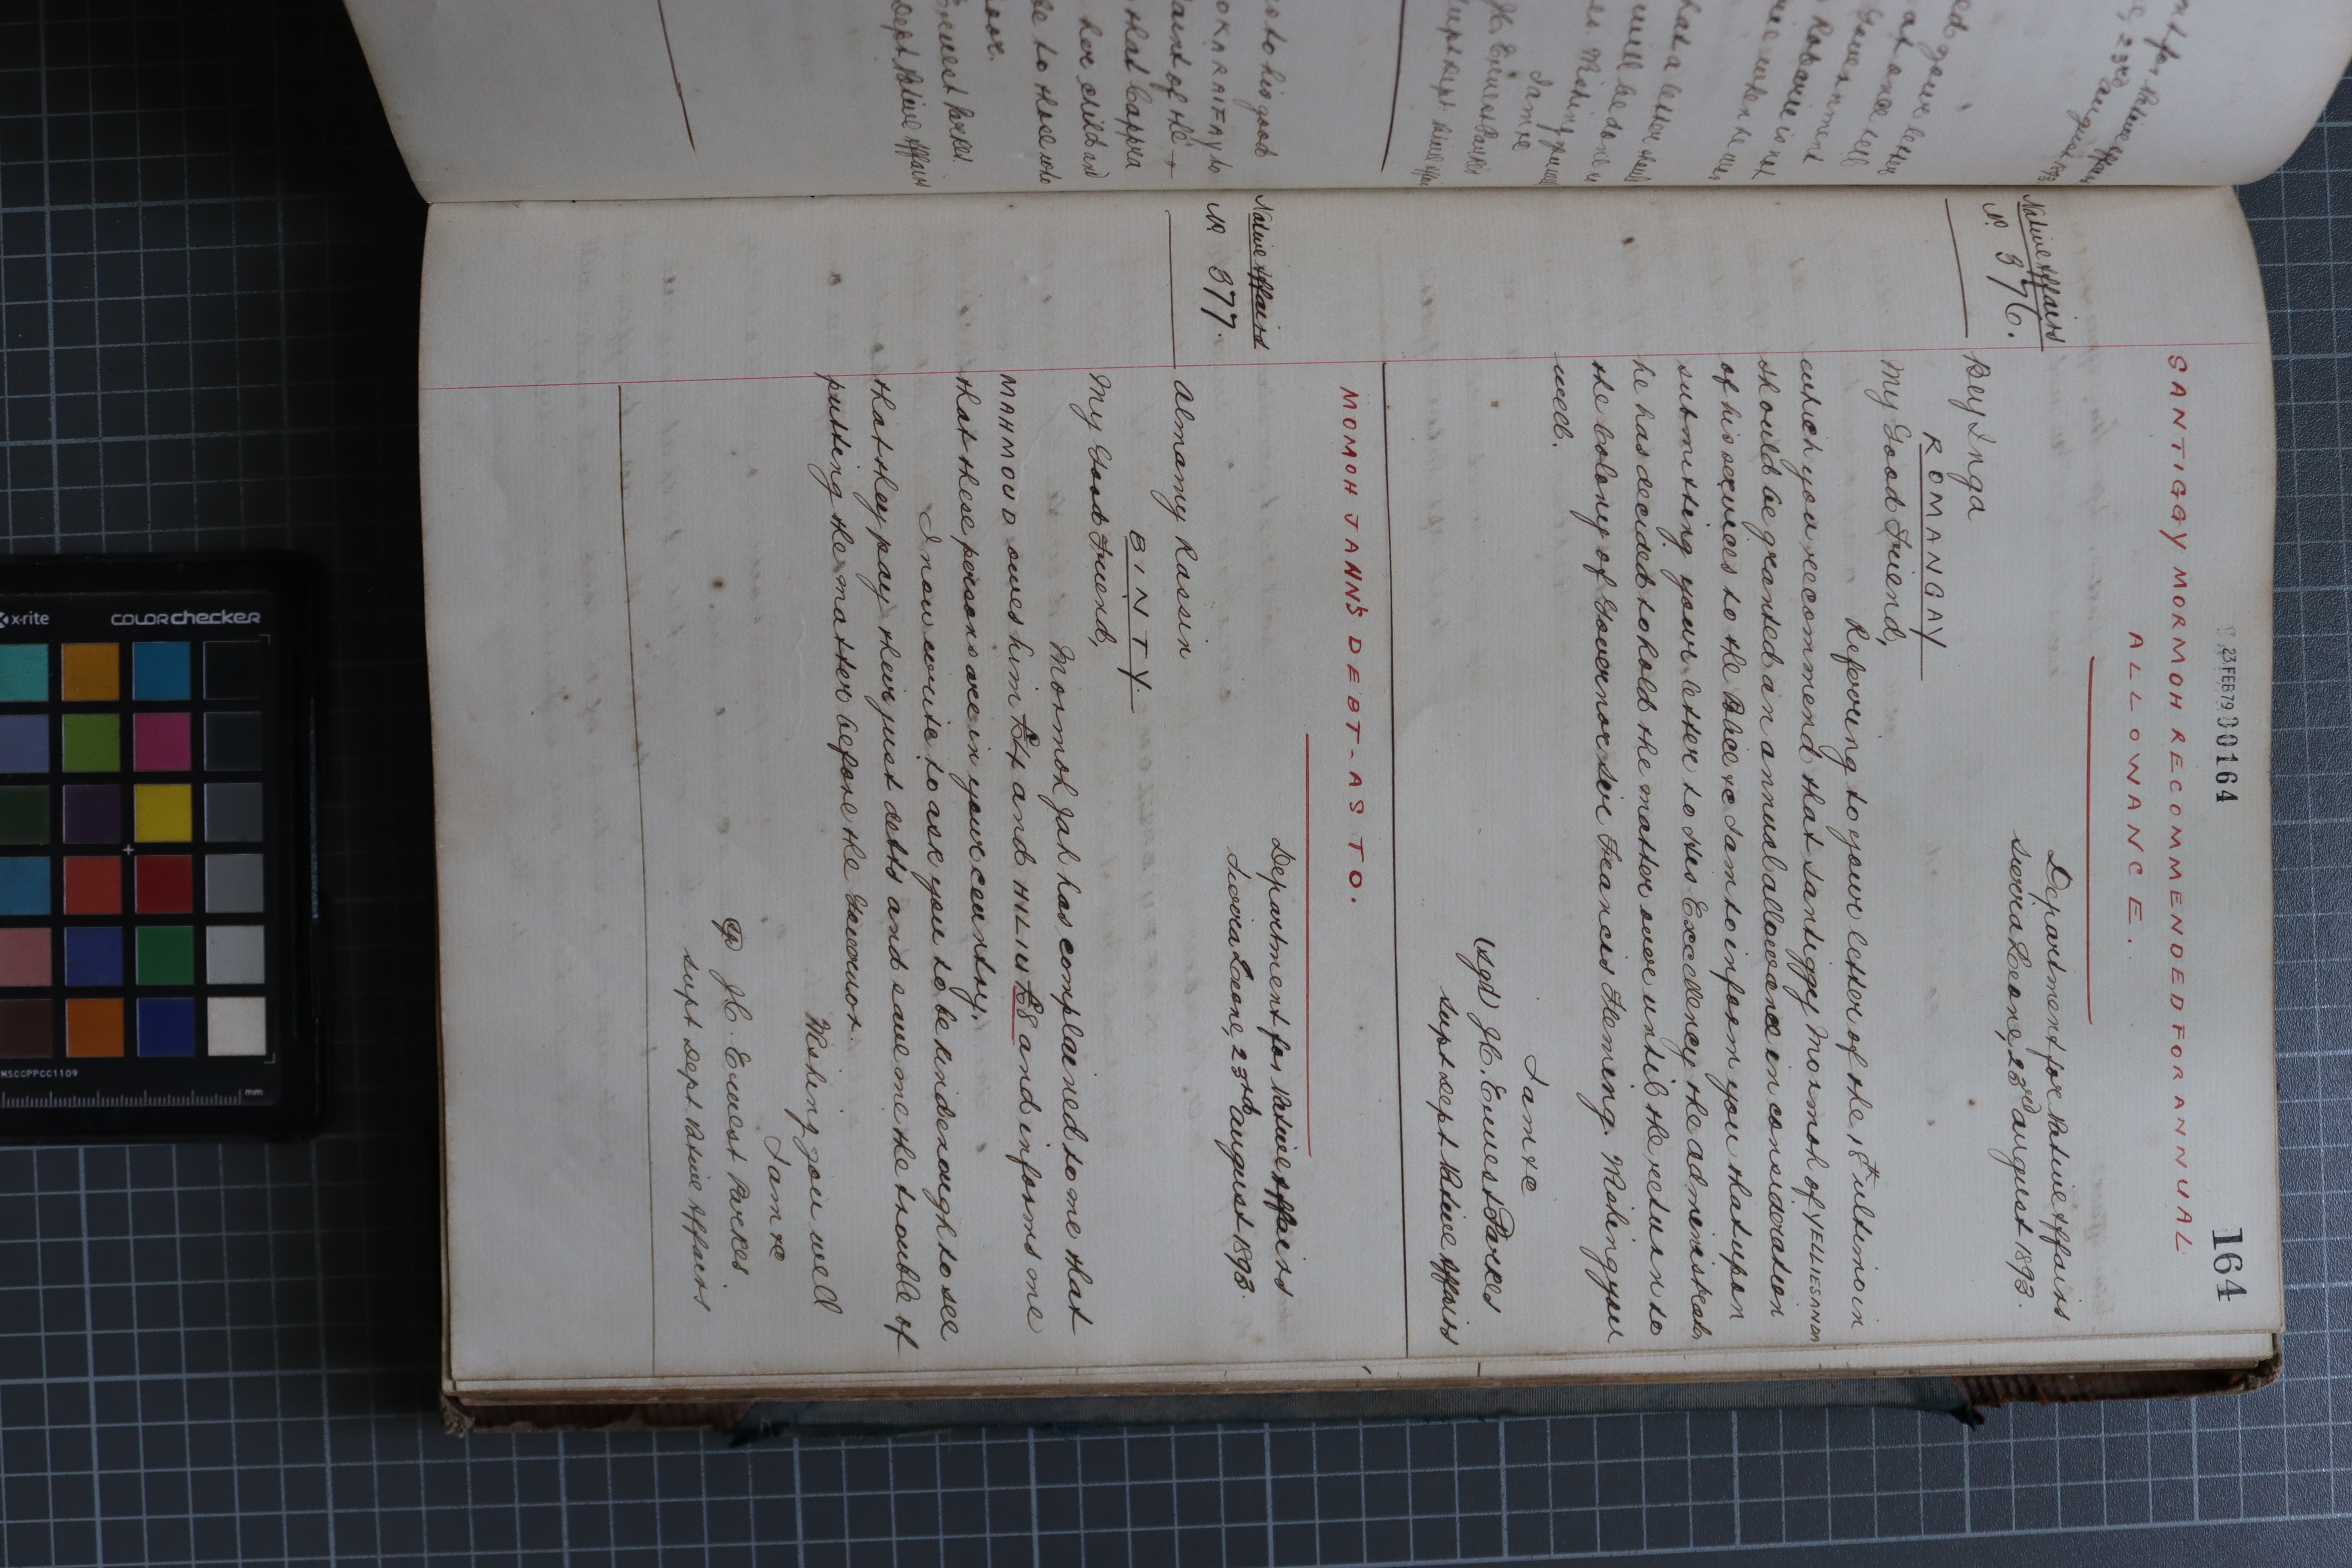 23 FEB 79 00164
164
SANTIGGY MORMOH RECOMMENDED FOR ANNUAL
ALLOWANCE.
Native Affairs
No 376.
Department for Native Affairs
Sierra Leone, 23rd August 1893.
Bey Inga
ROMANGAY
My Good Friend,
Referring to your letter of the 18th ultimo in
which you recommend that Santiggy Mormoh of YELLIESANDA
should be granted an annual allowance in consideration
of his services to the Police &c I am to inform you that upon
submitting your letter to His Excellency the Administrator
he has decided to hold the matter over until the return to
the Colony of Governor Sir Francis Fleming. Wishing you
well.
I am &c
(sgd) J.C. Ernest Parkes
Supt Dept Native Affairs
MOMOH JAHN'S DEBT - AS TO.
Native Affairs
No 377.
Department for Native Affairs
Sierra Leone, 23rd August 1893.
Almamy Lassin
BINTY.
My Good Friend,
Mormoh Jah has complained to me that
MAHMOUD owes him £4 and HILIU £8 and informs me
that these persons are in your country.
I now write to ask you to be kind enough to see
that they pay their just debts and save me the trouble of
putting the matter before the Governor.
Wishing you well
I am &c
J.C. Ernest Parkes
Supt Dept Native Affairs
his good
that Cappra
her child and
to those who
Ernest Parkes
Dept Native Affairs
your letter
at once tell
Government
that a letter
will be done
Wishing you
I am &c
J.C. Ernest Parkes
Supt Dept Native Affairs
23rd August 1893
x-rite
colorchecker
MSCCPPCC1109
mm